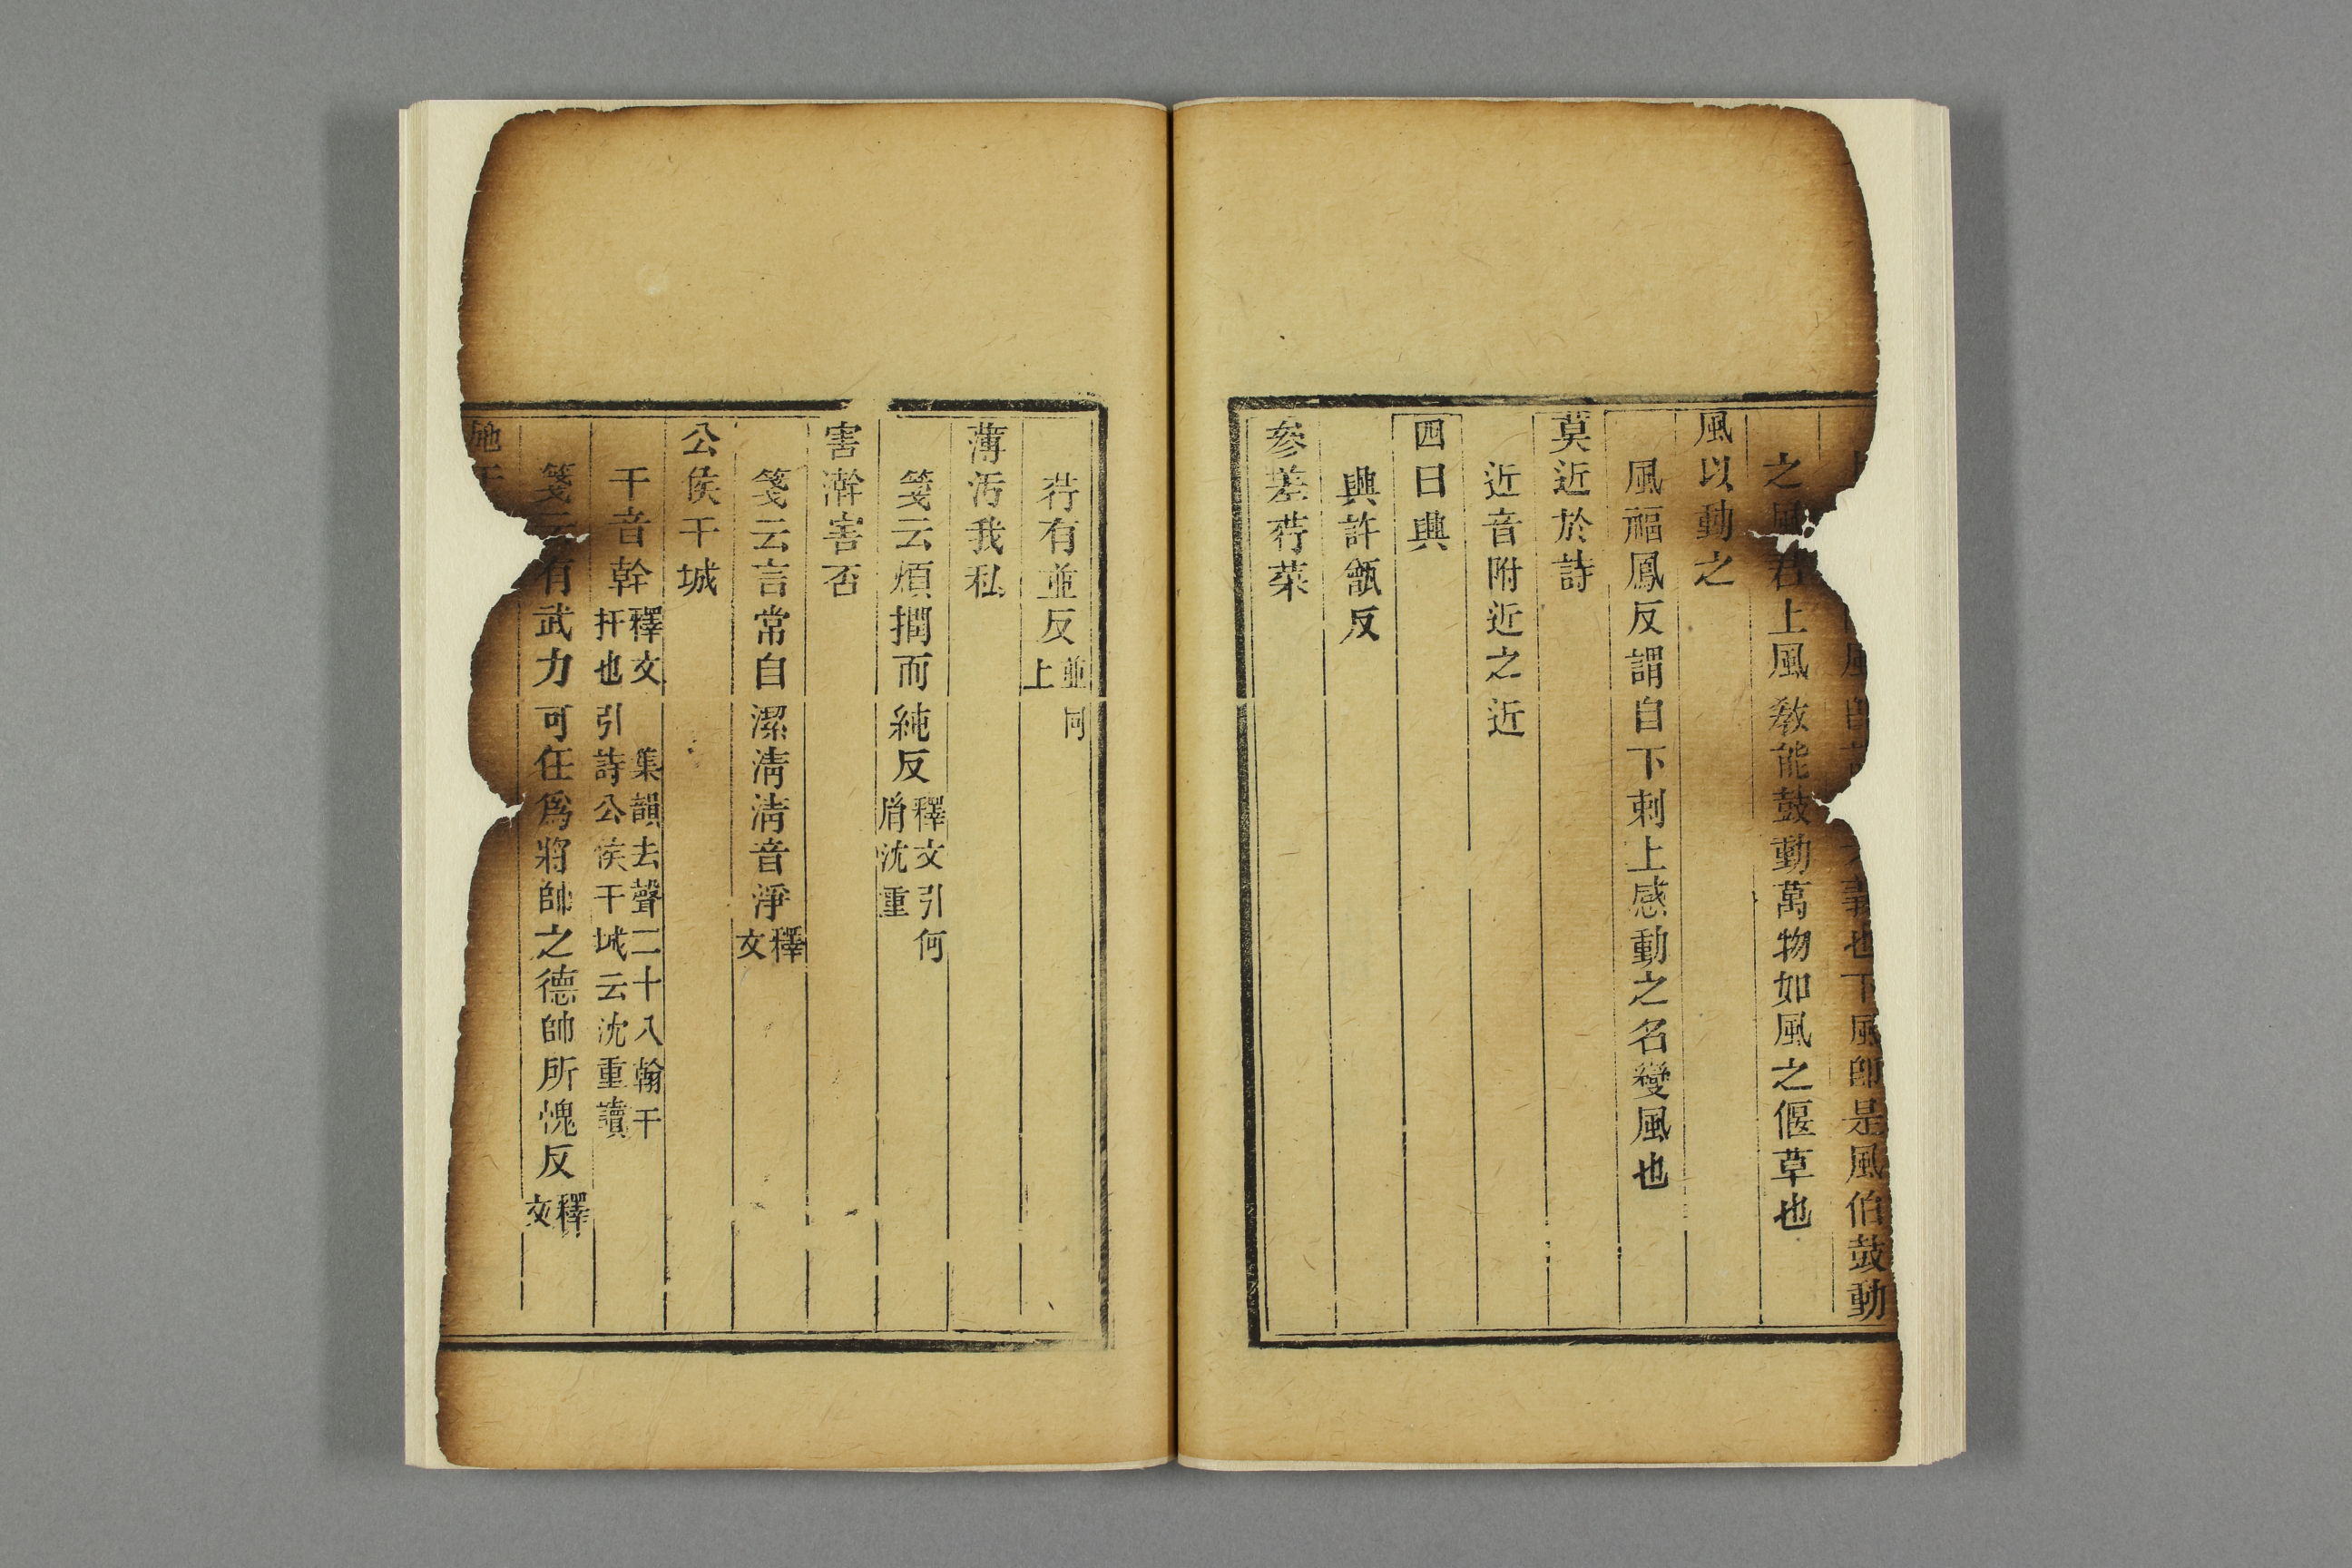 義也下風即是風伯鼓動
之風君上風敎能鼓動萬物如風之偃草也
風以動之
風福鳳反謂自下刺上感動之名變風也
莫近於詩
近音附近之近
四曰興
興許甑反
參差荇菜
荇有並反並同上
薄汚我私
箋云煩撋而純反釋文引何胤沈重
害澣害否
箋云言常自潔淸淸音淨釋文
公侯干城
干音幹釋文 集韻去聲二十八翰干扞也引詩公侯干城云沈重讀
箋云有武力可任爲將帥之德帥所愧反釋文
施于